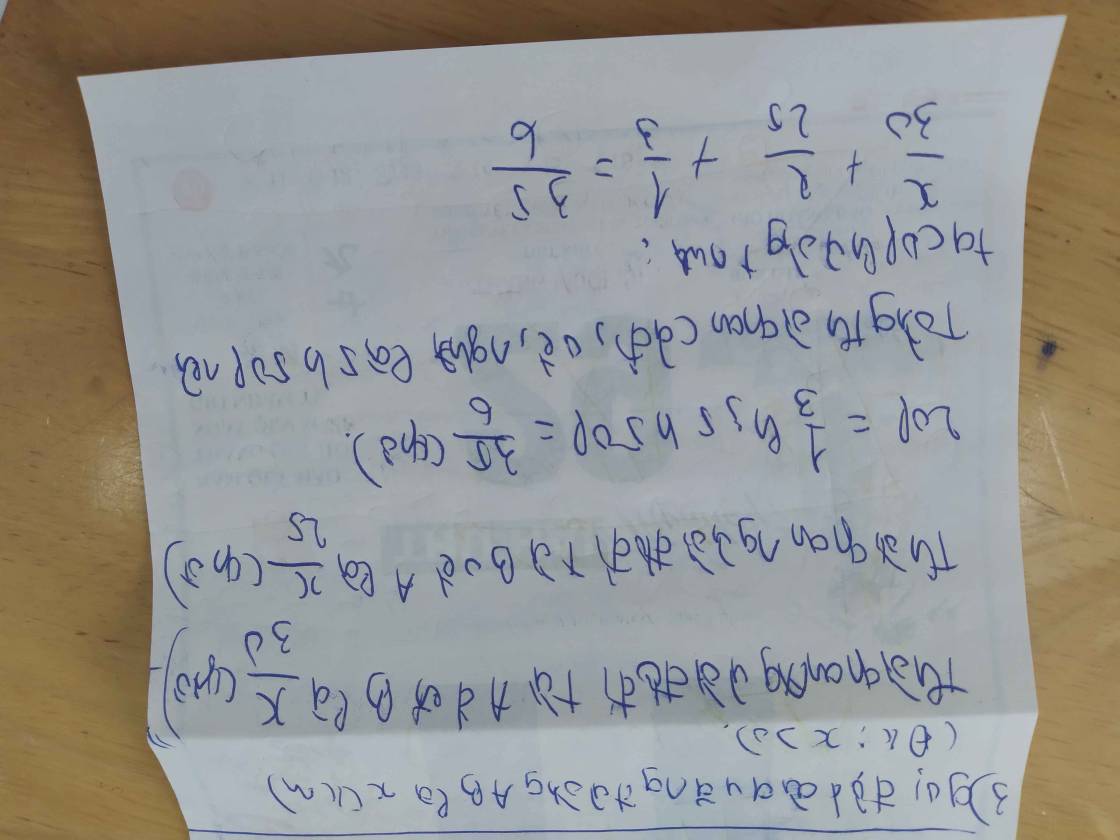 3) gọi độ dài quãng đường AB là x (km)
(ĐK: x > 0).
Thời gian người đó đi từ A đến B là x/30 (giờ)
Thời gian người đó đi từ B về A là x/25 (giờ)
20p = 1/3 h; 5h50p = 35/6 (giờ).
Tổng thời gian cả đi, về, nghỉ là 5h50p nên
ta có phương trình:
x/30 + x/25 + 1/3 = 35/6